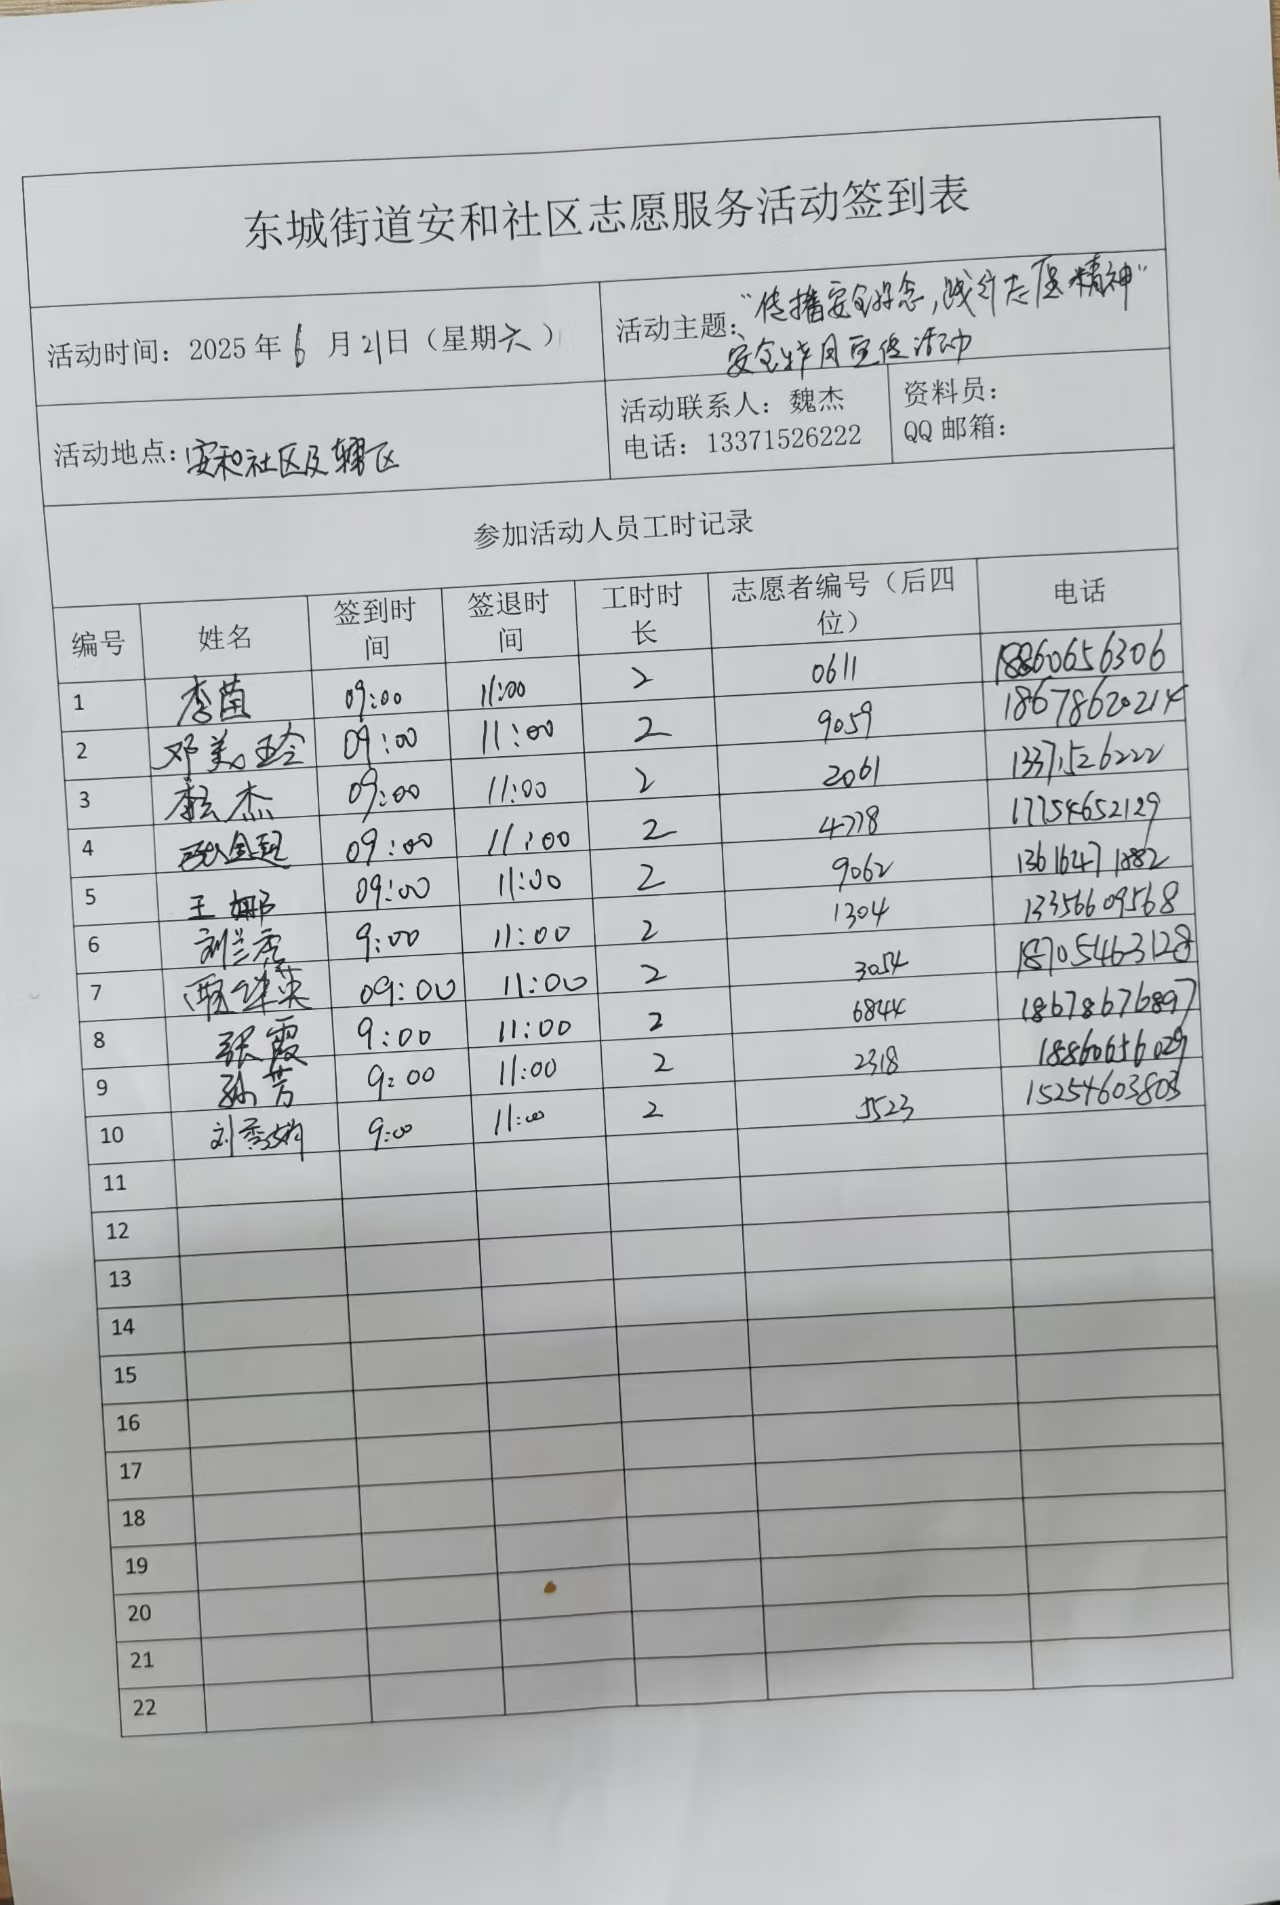 东城街道安和社区志愿服务活动签到表
活动时间：2025年6月21日（星期六）
活动主题：“传播安全理念，践行志愿精神”
安全生产月宣传活动
活动地点：安和社区及辖区
活动联系人：魏杰
电话：13371526222
资料员：
QQ邮箱：
参加活动人员工时记录
编号 姓名 签到时间 签退时间 工时时长 志愿者编号（后四位） 电话
1 李苗 09:00 11:00 2 0611 18860656306
2 邓美玲 09:00 11:00 2 9059 18678620214
3 魏杰 09:00 11:00 2 2061 13371526222
4 09:00 11:00 2 4778 17754652129
5 王娜 09:00 11:00 2 9062 13616471882
6 刘兰秀 9:00 11:00 2 1304 13356609568
7 09:00 11:00 2 3054 18705463128
8 张霞 9:00 11:00 2 6844 18678676897
9 孙芳 9:00 11:00 2 2318 18860656029
10 刘秀娟 9:00 11:00 2 5523 15254603803
11
12
13
14
15
16
17
18
19
20
21
22